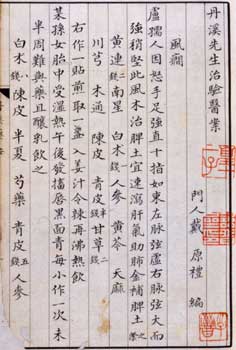 丹溪先生治驗醫案
門人戴原禮編
風癇
盧孺人因怒手足強直十指如束左脉弦虛右脉弦大而
強稍堅此風木治脾土宜速瀉肝氣助肺金補脾土之陰
黃連二錢 南星 白朮錢 人參 黃芩 天麻
川芎 木通 陳皮 青皮半錢 甘草二錢
右作一貼煎取一盞入姜汁令辣再沸熱飲
某孫女胎中受濕熱午後發搐唇黑面青每小作一次未
半周難與藥且釀乳飲之
白朮錢 陳皮 半夏 芍藥 青皮五錢 人參